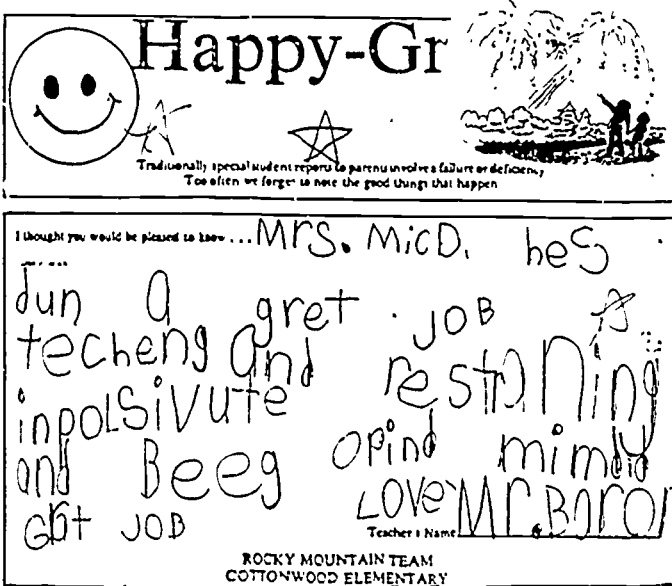 Happy-Gr
Traditionally special student reports to parents involve a failure or deficiency
Too often we forget to note the good things that happen
I thought you would be pleased to know ... Mrs. MicD. hes
dun a gret JOB
techeng and restraining
inpolsivute opind mimdid
and Beeg Love Mr.Boro
Grt JOB Teacher's Name
ROCKY MOUNTAIN TEAM
COTTONWOOD ELEMENTARY